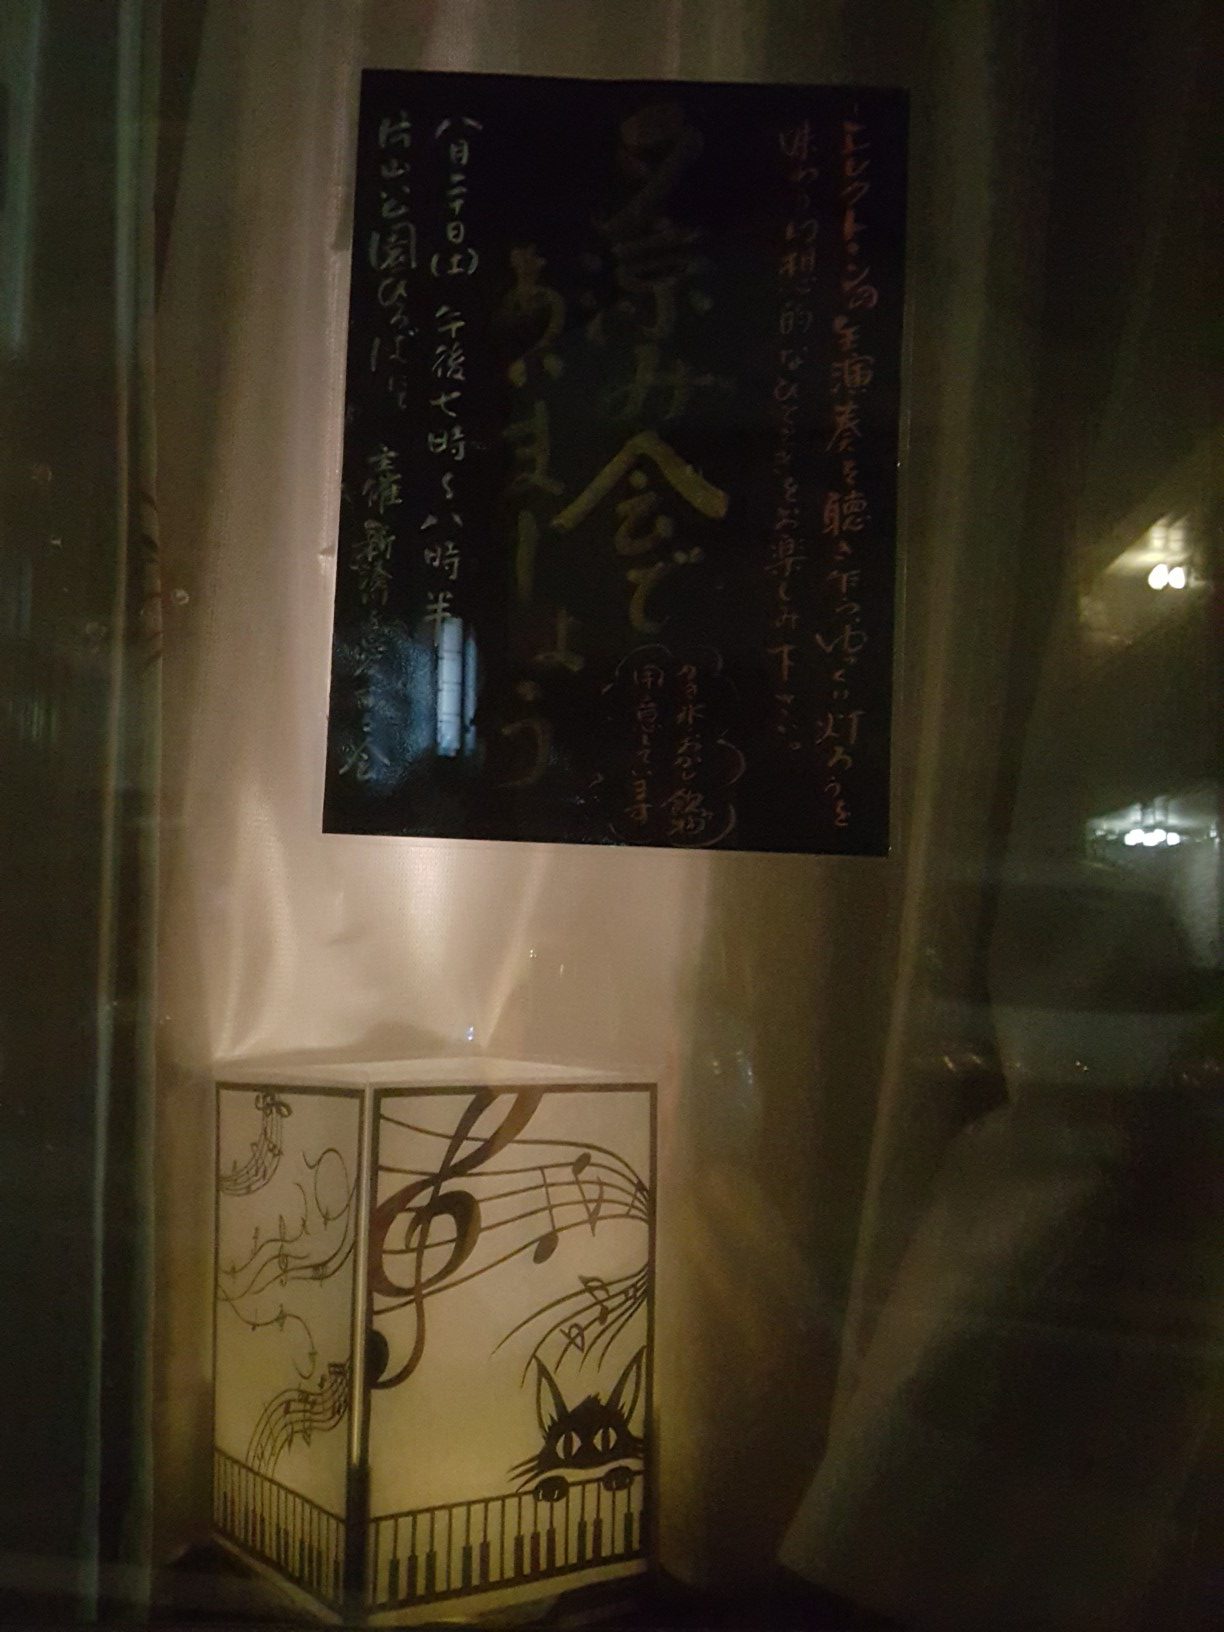 エレクトーンの生演奏を聴き乍らゆっくり灯ろうを
味わう幻想的なひとときをお楽しみ下さい。
夕涼み会で
あいましょう
かき氷 お菓子 飲物
用意しています
八月二十日(土) 午後七時〜八時半
片山公園ひろばにて 主催 新諸